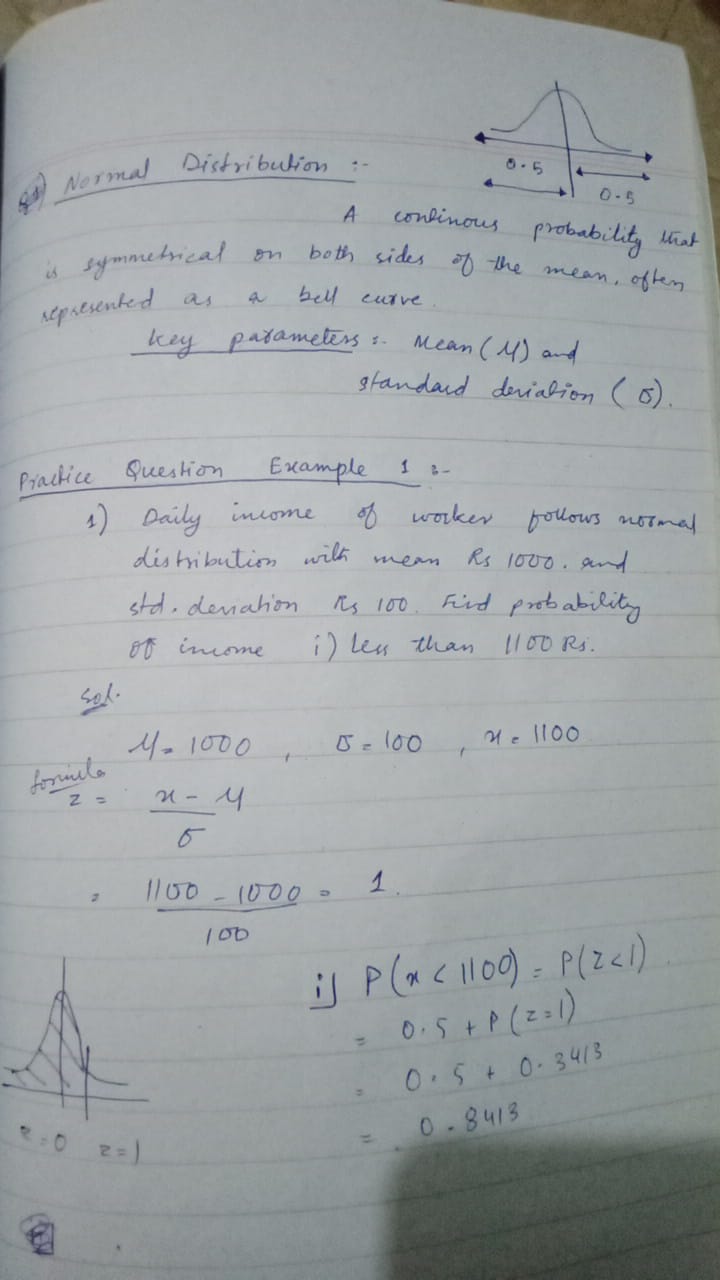 0.5
0.5
Normal Distribution :-
A continous probability that
is symmetrical on both sides of the mean, often
represented as a bell curve.
Key parameters :- Mean (μ) and
standard deviation (σ).
Practice Question Example 1 :-
1) Daily income of worker follows normal
distribution with mean Rs 1000. and
std. deviation Rs 100. Find probability
of income i) less than 1100 Rs.
Sol.
μ = 1000 , σ = 100 , x = 1100
formula
z = x - μ
σ
= 1100 - 1000 = 1.
100
i) P(x < 1100) = P(z < 1).
= 0.5 + P(z=1)
= 0.5 + 0.3413
= 0.8413
z=0 z=1